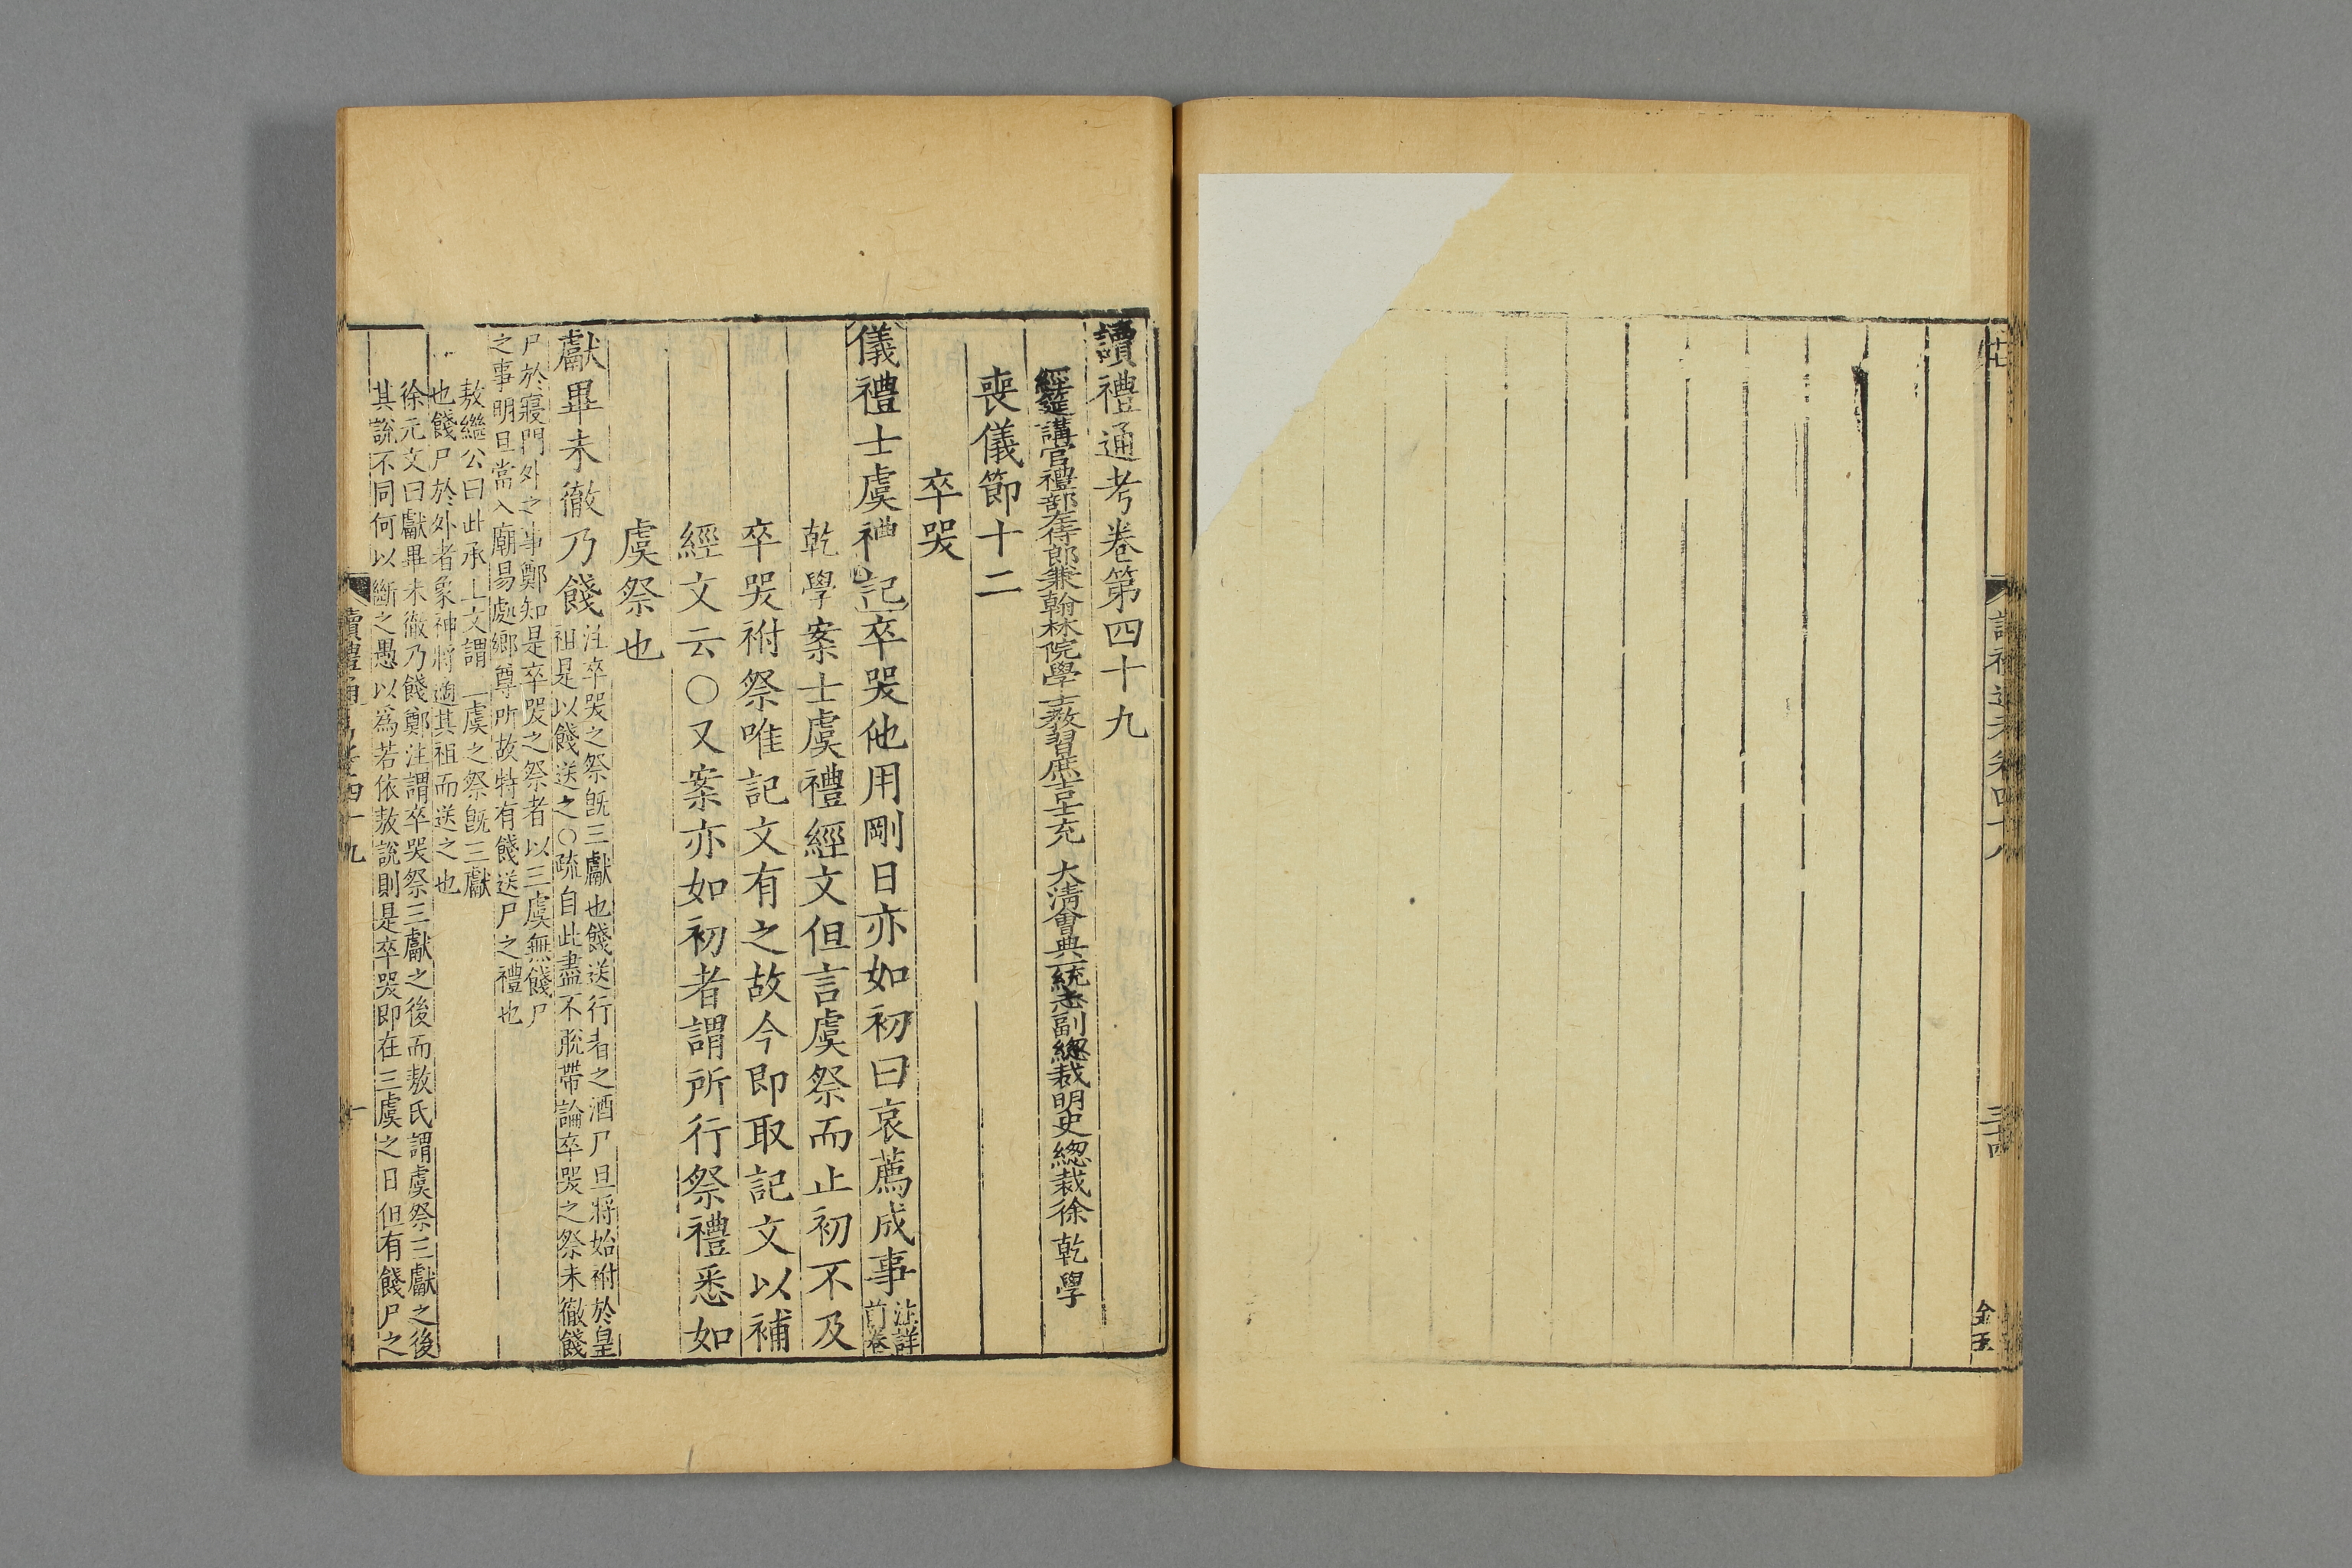 讀禮通考卷第四十九
經筵講官禮部左侍郎兼翰林院學士教習庶吉士充 大清會典一統志副總裁明史總裁徐乾學
喪儀節十二
卒哭
儀禮士虞禮記卒哭他用剛日亦如初曰哀薦成事注詳前卷
乾學案士虞禮經文但言虞祭而止初不及
卒哭祔祭唯記文有之故今即取記文以補
經文云○又案亦如初者謂所行祭禮悉如
虞祭也
獻畢未徹乃餞注卒哭之祭旣三獻也餞送行者之酒尸旦將始祔於皇
祖是以餞送之○疏自此盡不脫帶論卒哭之祭未徹餞
尸於寢門外之事鄭知是卒哭之祭者以三虞無餞尸
之事明旦當入廟易處鄉尊所故特有餞送尸之禮也
敖繼公曰此承上文謂三虞之祭旣三獻
也餞尸於外者象神將適其祖而送之也
徐元文曰獻畢未徹乃餞鄭注謂卒哭祭三獻之後而敖氏謂虞祭三獻之後
其說不同何以斷之愚以為若依敖說則是卒哭即在三虞之日但有餞尸之
讀禮通考四十九
一
讀禮通考卷四十八
三十四
金玉